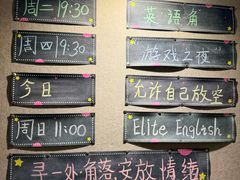 周二19:30 英语角
周四19:30 "游戏之夜"
今日 允许自己放空
周日11:00 Elite English
寻一处角落,安放情绪